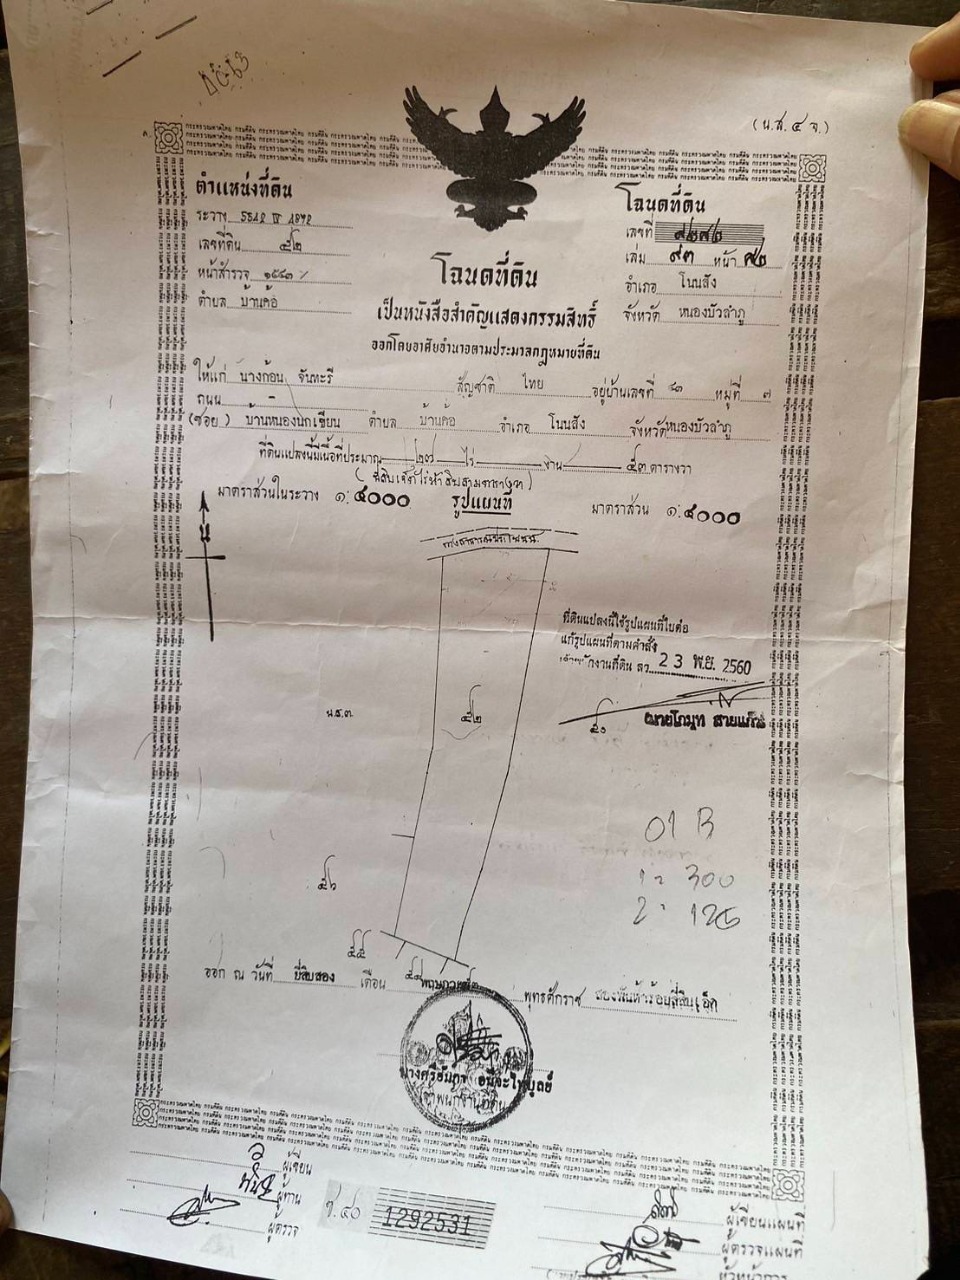 (น.ส. ๔ จ.)
ตำแหน่งที่ดิน
ระวาง 5542 IV 1872
เลขที่ดิน ๔๒
หน้าสำรวจ ๑๕๔๓
ตำบล บ้านค้อ
โฉนดที่ดิน
เลขที่
เล่ม ๙๓ หน้า
อำเภอ โนนสัง
จังหวัด หนองบัวลำภู
โฉนดที่ดิน
เป็นหนังสือสำคัญแสดงกรรมสิทธิ์
ออกโดยอาศัยอำนาจตามประมวลกฎหมายที่ดิน
ให้แก่ นางก้อน จันทะรี สัญชาติ ไทย อยู่บ้านเลขที่ ๘๑ หมู่ที่ ๗
ถนน
(ซอย) บ้านหนองนกเขียน ตำบล บ้านค้อ อำเภอ โนนสัง จังหวัด หนองบัวลำภู
ที่ดินแปลงนี้มีเนื้อที่ประมาณ ๒๗ ไร่ งาน ๕๓ ตารางวา
(ยี่สิบเจ็ดไร่ห้าสิบสามตารางวา)
มาตราส่วนในระวาง ๑:๔๐๐๐ รูปแผนที่ มาตราส่วน ๑:๔๐๐๐
น
ทางสาธารณประโยชน์
ที่ดินแปลงนี้ใช้รูปแผนที่ใบต่อ
แก้รูปแผนที่ตามคำสั่ง
เจ้าพนักงานที่ดิน ลว. 23 พ.ย. 2560
น.ส.๓. ๔๒ ๕๐
นายโกมุท สายแก้ว
01 B
1 = 300
๕๖
๕๕
ออก ณ วันที่ ยี่สิบสอง เดือน พฤษภาคม พุทธศักราช สองพันห้าร้อยสี่สิบเอ็ด
เจ้าพนักงานที่ดิน
ผู้เขียน
ผู้ทาน
ผู้ตรวจ
ช. ๔๐ 1292531
ผู้เขียนแผนที่
ผู้ตรวจแผนที่
หัวหน้าการ